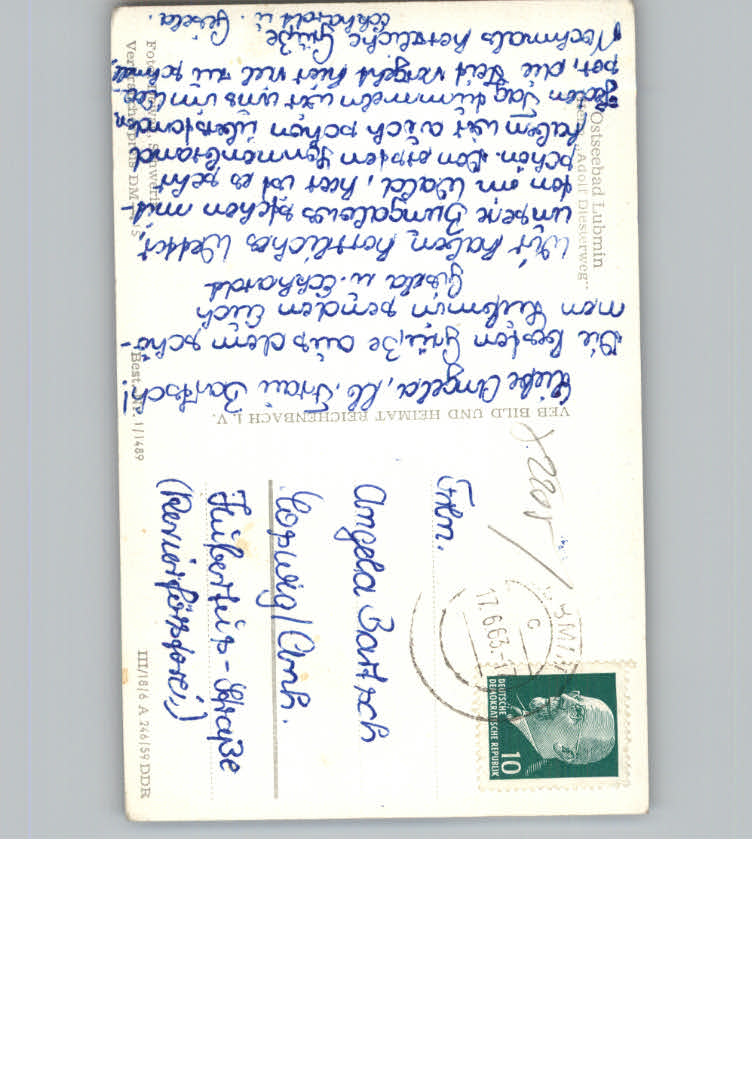 Ostseebad Lubmin
„Adolf Diesterweg“
Liebe Angela, lb. Frau Bartsch!
Die besten Grüße aus dem schö-
nen Lubmin senden Euch
Gisela u. Eckhardt
Wir haben herrliches Wetter,
unsere Bungalows stehen mit-
ten im Wald, hier ist es sehr
schön. Den ersten Sonnenbrand
haben wir auch schon überstanden
Jeden Tag tummeln wir uns im Was
ser, die Zeit vergeht hier viel zu schnell,
Nochmals herzliche Grüße
Eckhardt u. Gisela.
Foto: Schwerin
Verbraucherpreis DM
Best.-Nr. 1/1489
VEB BILD UND HEIMAT REICHENBACH I. V.
III/18/6 A 246/59 DDR
17.6.63.-1
C
DEUTSCHE
DEMOKRATISCHE REPUBLIK
10
Frln.
Angela Bartsch
Coswig/Anh.
Hubertus-Straße
(Revierförsterei)